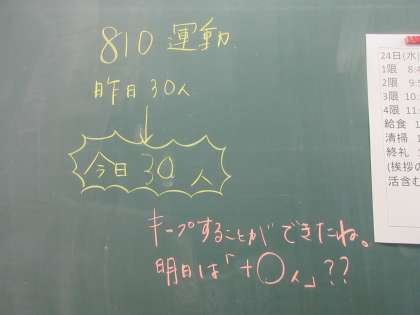 810 運動
昨日 30人
今日 30人
キープすることができたね。
明日は「+○人」??
24日(水)
1限 8:4
2限 9:5
3限 10:
4限 11:
給食 1
清掃 1
終礼 1
(挨拶の
活含む